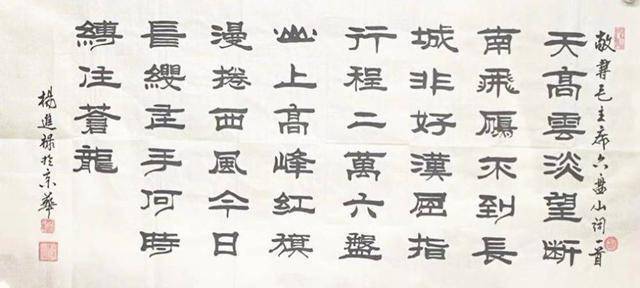 敬書毛主席六盤山词一首
天髙雲淡望断
南飛鴈不到長
城非好漢屈指
行程二萬六盤
山上髙峰红旗
漫捲西風今日
長纓在手何時
縛住蒼龍
楊進禄於京華